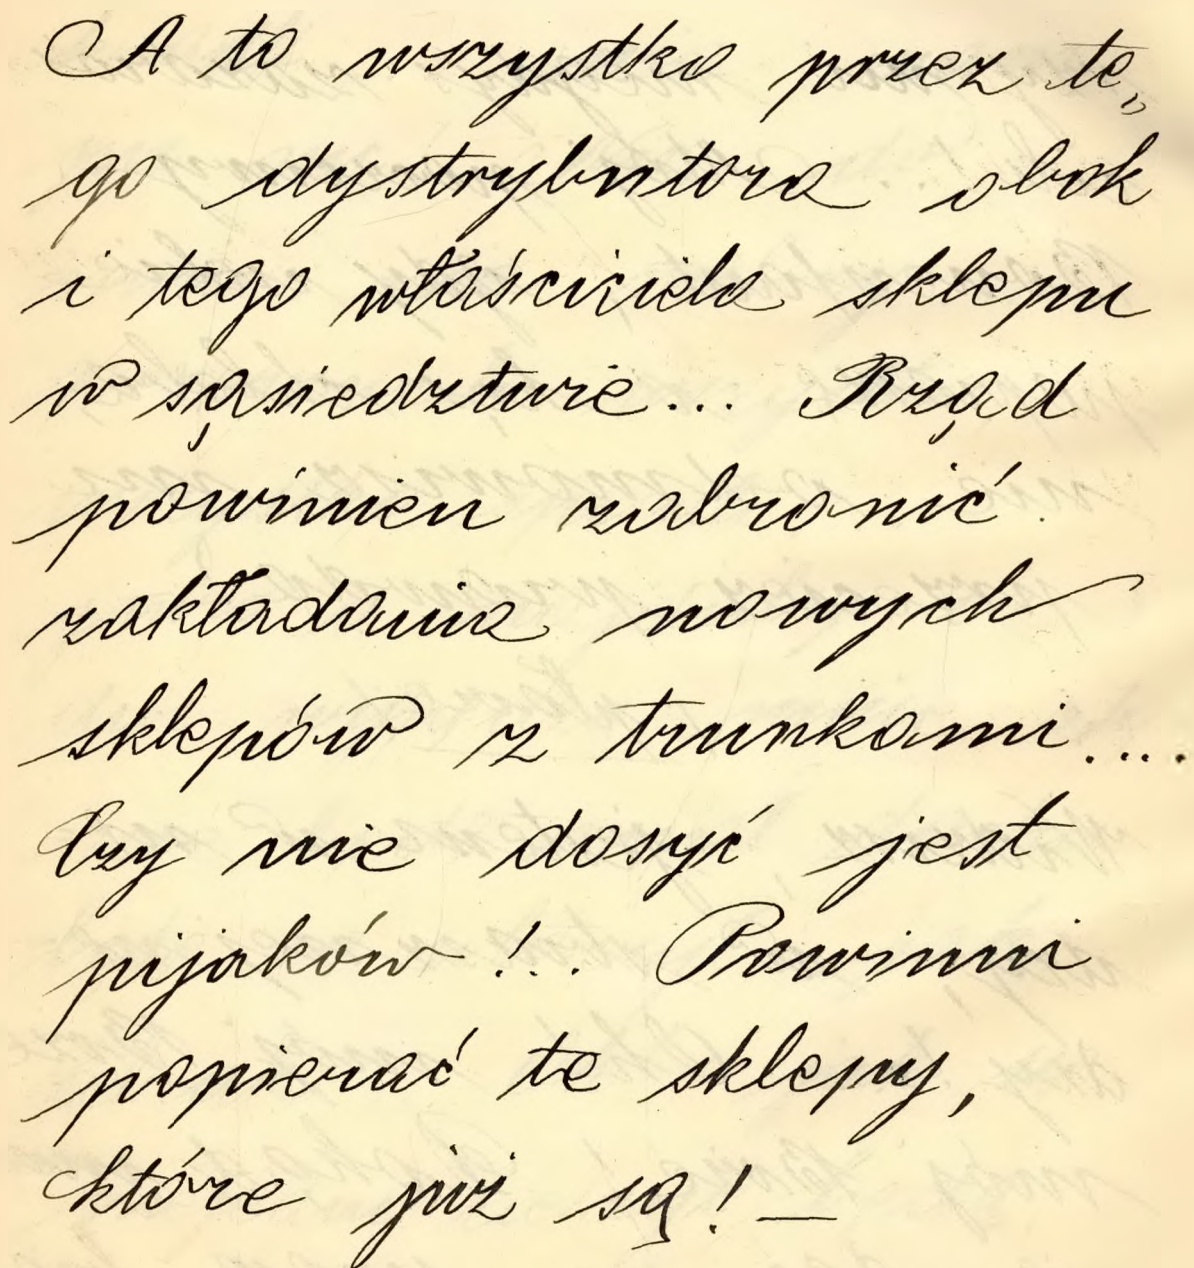 A to wszystko przez te„
go dystrybutora obok
i tego właściciela sklepu
w sąsiedztwie... Rząd
powinien zabronić
zakładania nowych
sklepów z trunkami....
Czy nie dosyć jest
pijaków!.. Powinni
popierać te sklepy,
które już są! —